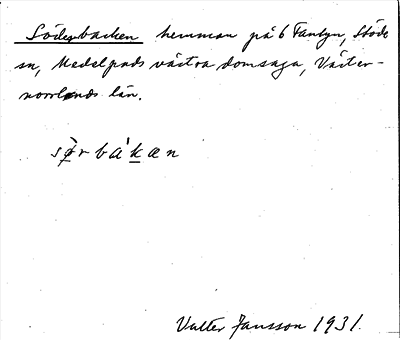 Söderbacken hemman på 6 Fantyn, Stöde
sn, Medelpads västra domsaga, Väster-
norrlands län.
sø̀rbákæn
Valter Jansson 1931.